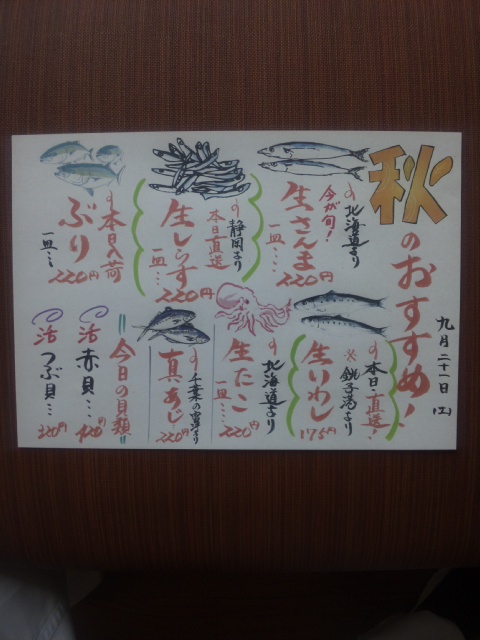 秋のおすすめ!
九月二十一日(土)
北海道より
今が旬!
生さんま
一皿…220円
静岡より
本日直送
生しらす
一皿…220円
本日入荷
ぶり
一皿…220円
本日直送!
銚子港より
生いわし
175円
北海道より
生たこ
一皿…220円
千葉の富津より
真あじ
220円
今日の貝類
活赤貝…420円
活つぶ貝…320円